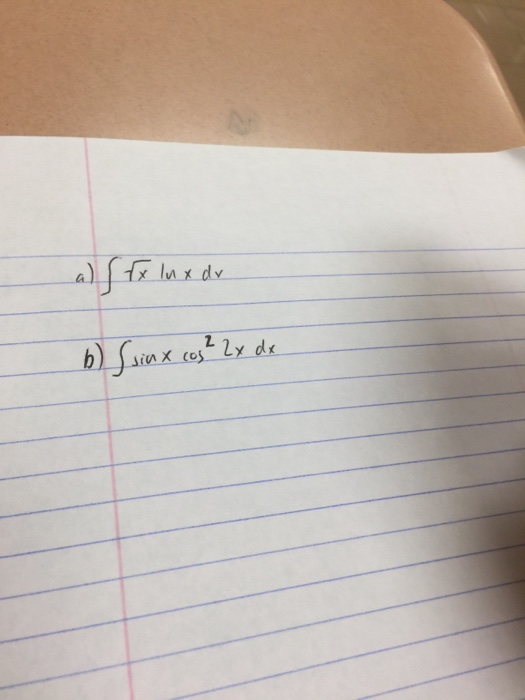 a) ∫ √x ln x dx
b) ∫ sin x cos² 2x dx